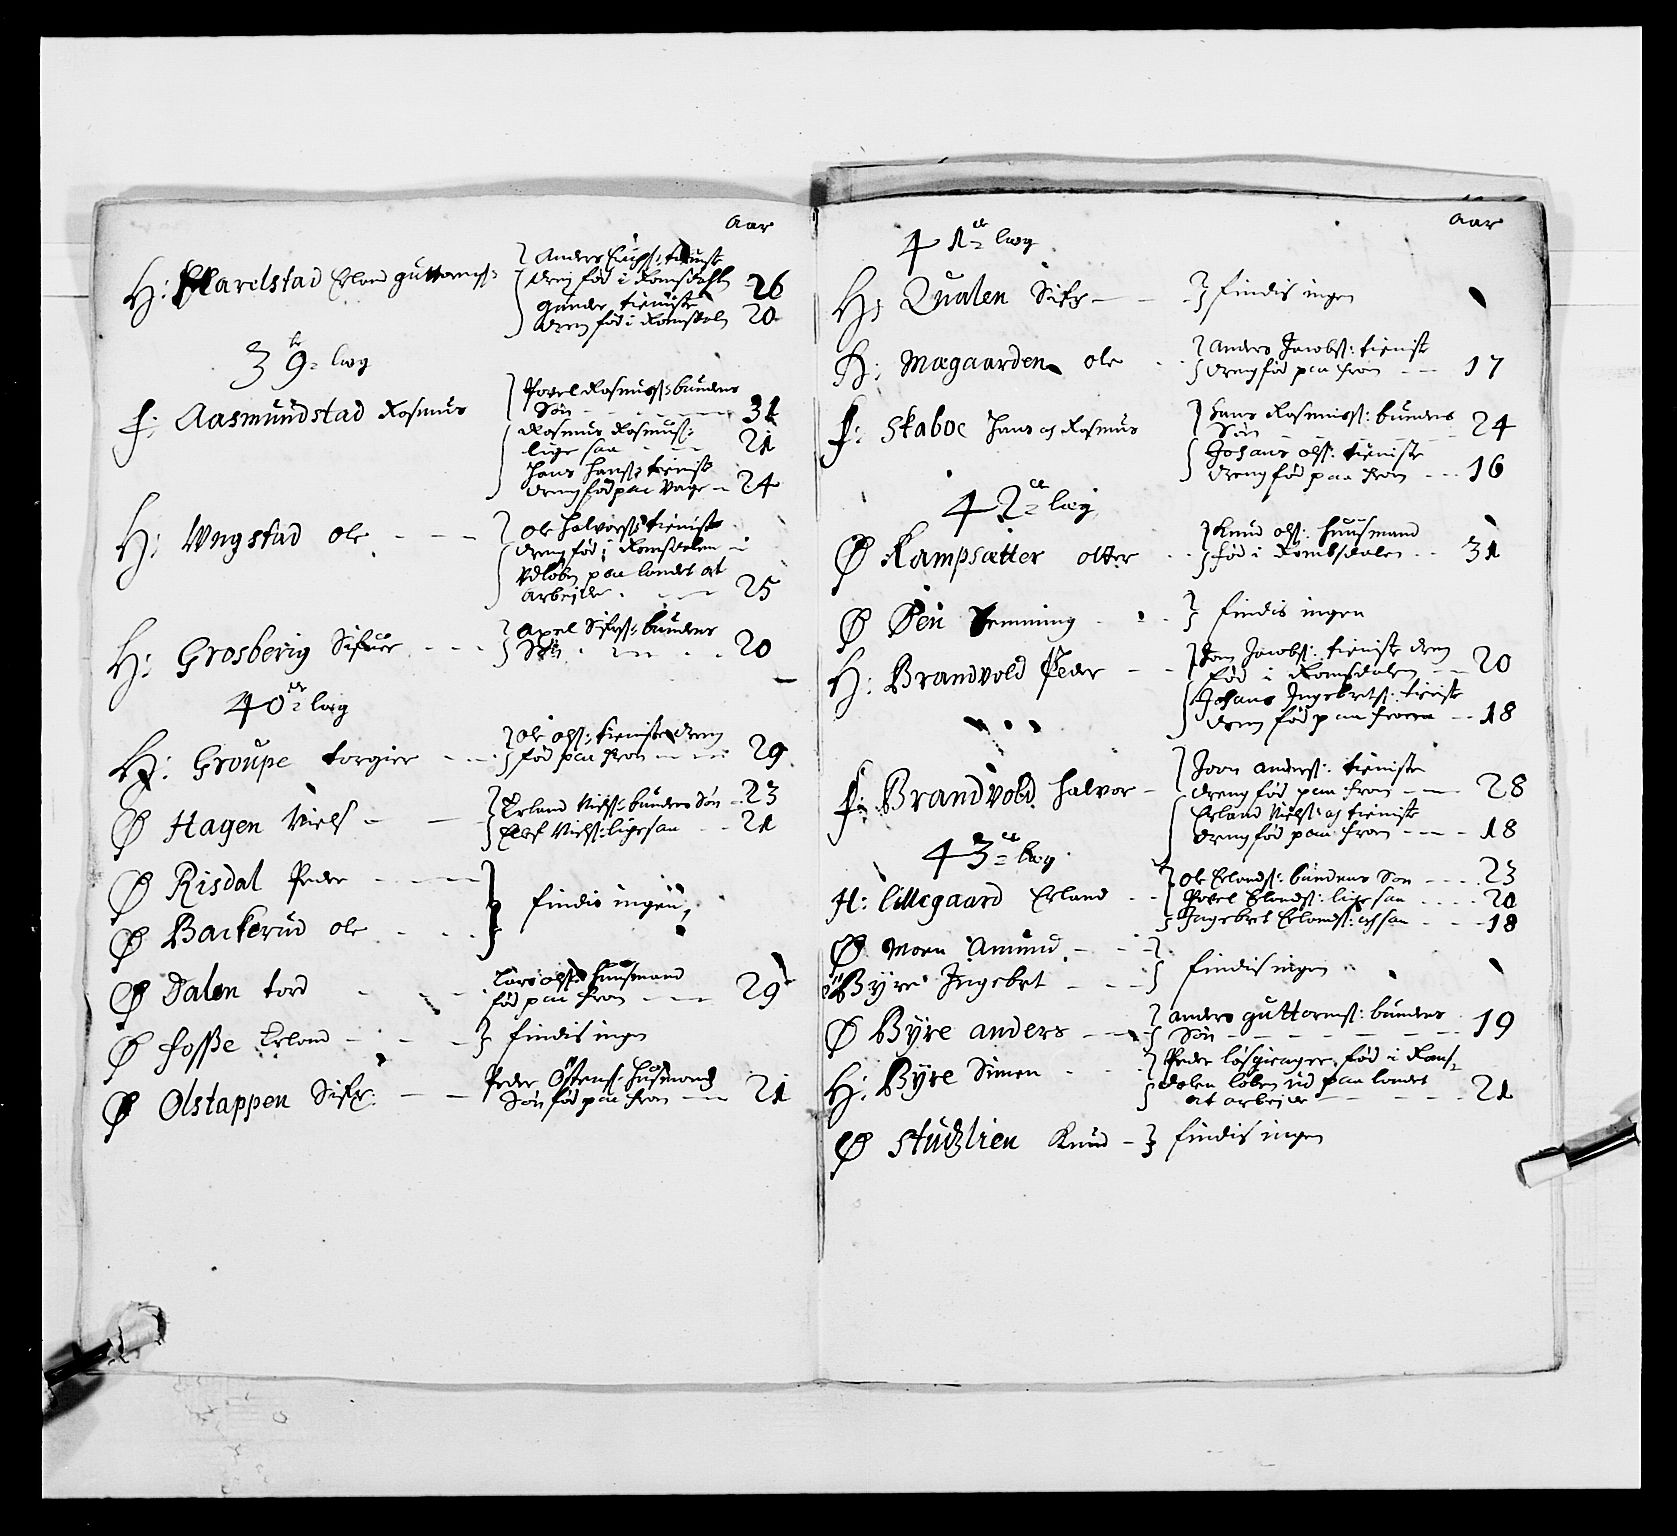 Aar
H: Harelstad Erland guttormß:
Anders tieniste
dreng fød i Romsdahl 26
Gunder tieniste
dreng fød i Romsdalen 20
39de læg
f: Aasmundstad Rasmus
Povel Rasmusß: bundens
Søn 31
Rasmus Rasmusß:
lige saa 21
Hans Hansß: tieniste
dreng fød paa Vage 24
H: Vngstad Ole
Ole Halvorß: tieniste
dreng fød i Romsdalen
Vdløben paa landet at
arbejde 25
H: Grosberig Sifuer
Axel Sifrß: bundens
Søn 20
40de læg
H: Groupe torgier
Ole olß: tieniste dreng
fød paa fron 29
Ø Hagen Niels
Erland Nielß: bundens Søn 23
Nielß: ligesaa 21
Ø Risdal Peder
findis ingen
Ø Backerud ole
Ø Dalen tord
Lars olß: Huusmand
fød paa fron 29
Ø fosße Erland
findis ingen
Ø Olstappen Sifr:
Peder Østensß: Husmands
Søn fød paa fron 21
Aar
41de læg
H: Qualen Sifr
findis ingen
H: Mægaarden ole
Anders Jacobß: tieniste
dreng fød paa fron 17
f: Skaboe Hans og Rasmus
Hans Rasmusß: bundens
Søn 24
Johans olß: tieniste
dreng fød paa fron 16
42de læg
Ø Kampsætter otter
Knud olß: huusmand
fød i Rombsdalen 31
Ø Øen Hemming
findis ingen
H: Brandvold Peder
Jon Jacobß: tieniste dreng
fød i Romsdalen 20
Johans Ingebretß: tienist
dreng fød paa fron 18
f: Brandvold halvor
Joen anderß: tieniste
dreng fød paa fron 28
Erland Nielß: og tieniste
dreng fød paa fron 18
43de læg
H: Lillegaard Erland
ole Erlandß: bundens Søn 23
Povel Erlandß: lige saa 20
Ingebret Erlandß: og saa 18
Ø Moen Amund
Ø Byre Ingebret
findis ingen
Ø Byre anders
anders guttormß: bundens
Søn 19
H: Byre Simen
Peder løsgienger fød i Roms-
dalen løben ud paa landet
at arbejde 21
Ø Stutzlien Knud
findis ingen